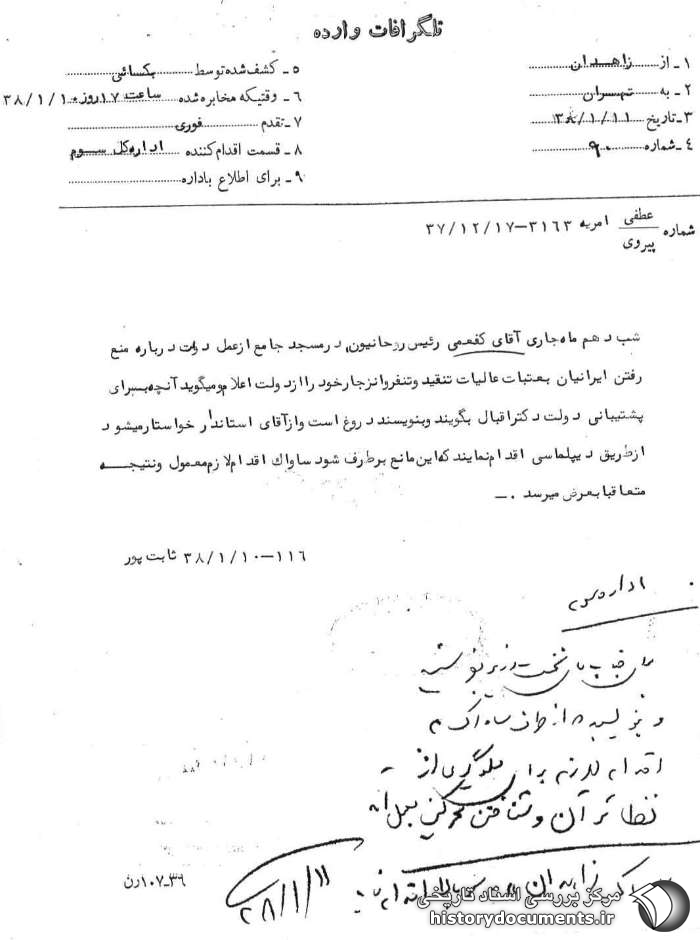 تلگرافات وارده
۱ـ از زاهدان
۲ـ به تهران
۳ـ تاریخ ۳۸/۱/۱۱
۴ـ شماره ۹۰
۵ـ کشف شده توسط یکسائی
۶ـ وقتیکه مخابره شده ساعت ۱۷ روز ۳۸/۱/۱۰
۷ـ تقدم فوری
۸ـ قسمت اقدام کننده اداره کل سوم
۹ـ برای اطلاع باداره
شماره عطفی / پیروی امریه ۳۱۶۳-۳۷/۱۲/۱۷
شب دهم ماه جاری آقای کفعمی رئیس روحانیون در مسجد جامع از عمل دولت درباره منع
رفتن ایرانیان بعتبات عالیات تنقید و تنفر و انزجار خود را از دولت اعلام و میگوید آنچه برای
پشتیبانی دولت دکتر اقبال بگویند و بنویسند دروغ است و از آقای استاندار خواستار میشود
از طریق دیپلماسی اقدام نمایند که این مانع برطرف شود ساواک اقدام لازم معمول و نتیجه
متعاقبا بعرض میرسد .ـ
۱۱۶-۳۸/۱/۱۰ ثابت پور
اداره سوم
جناب نخست وزیر
از طرف ساواک
اقدام لازم برای جلوگیری از
نظائر آن و شناختن محرکین بعمل آمده
زاهدان
۲۸/۱/۱۱
۳۶-۱۰۷ رن
مرکز بررسی اسناد تاریخی
historydocuments.ir